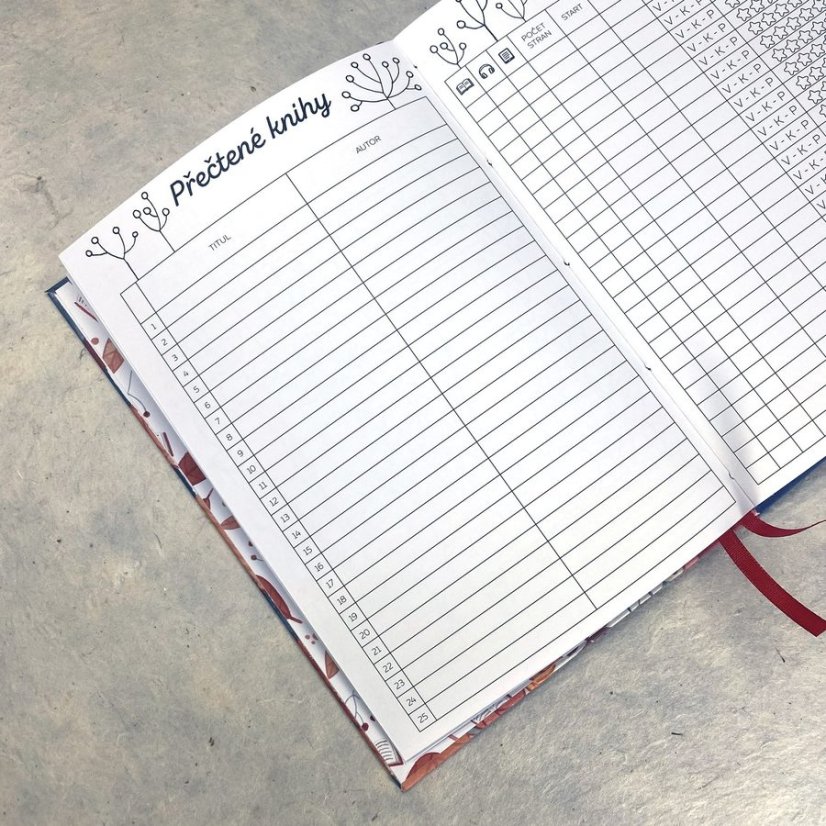 Přečtené knihy
TITUL AUTOR
1
2
3
4
5
6
7
8
9
10
11
12
13
14
15
16
17
18
19
20
21
22
23
24
25
POČET
STRAN
START
V - K - P
V - K - P
V - K - P
V - K - P
V - K - P
V - K - P
V - K - P
V - K - P
V - K - P
V - K - P
V - K - P
V - K - P